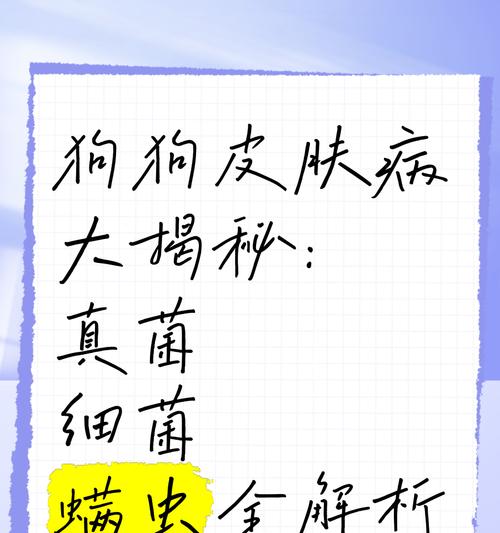 狗狗皮肤病
大揭秘：
真菌
细菌
螨虫全解析